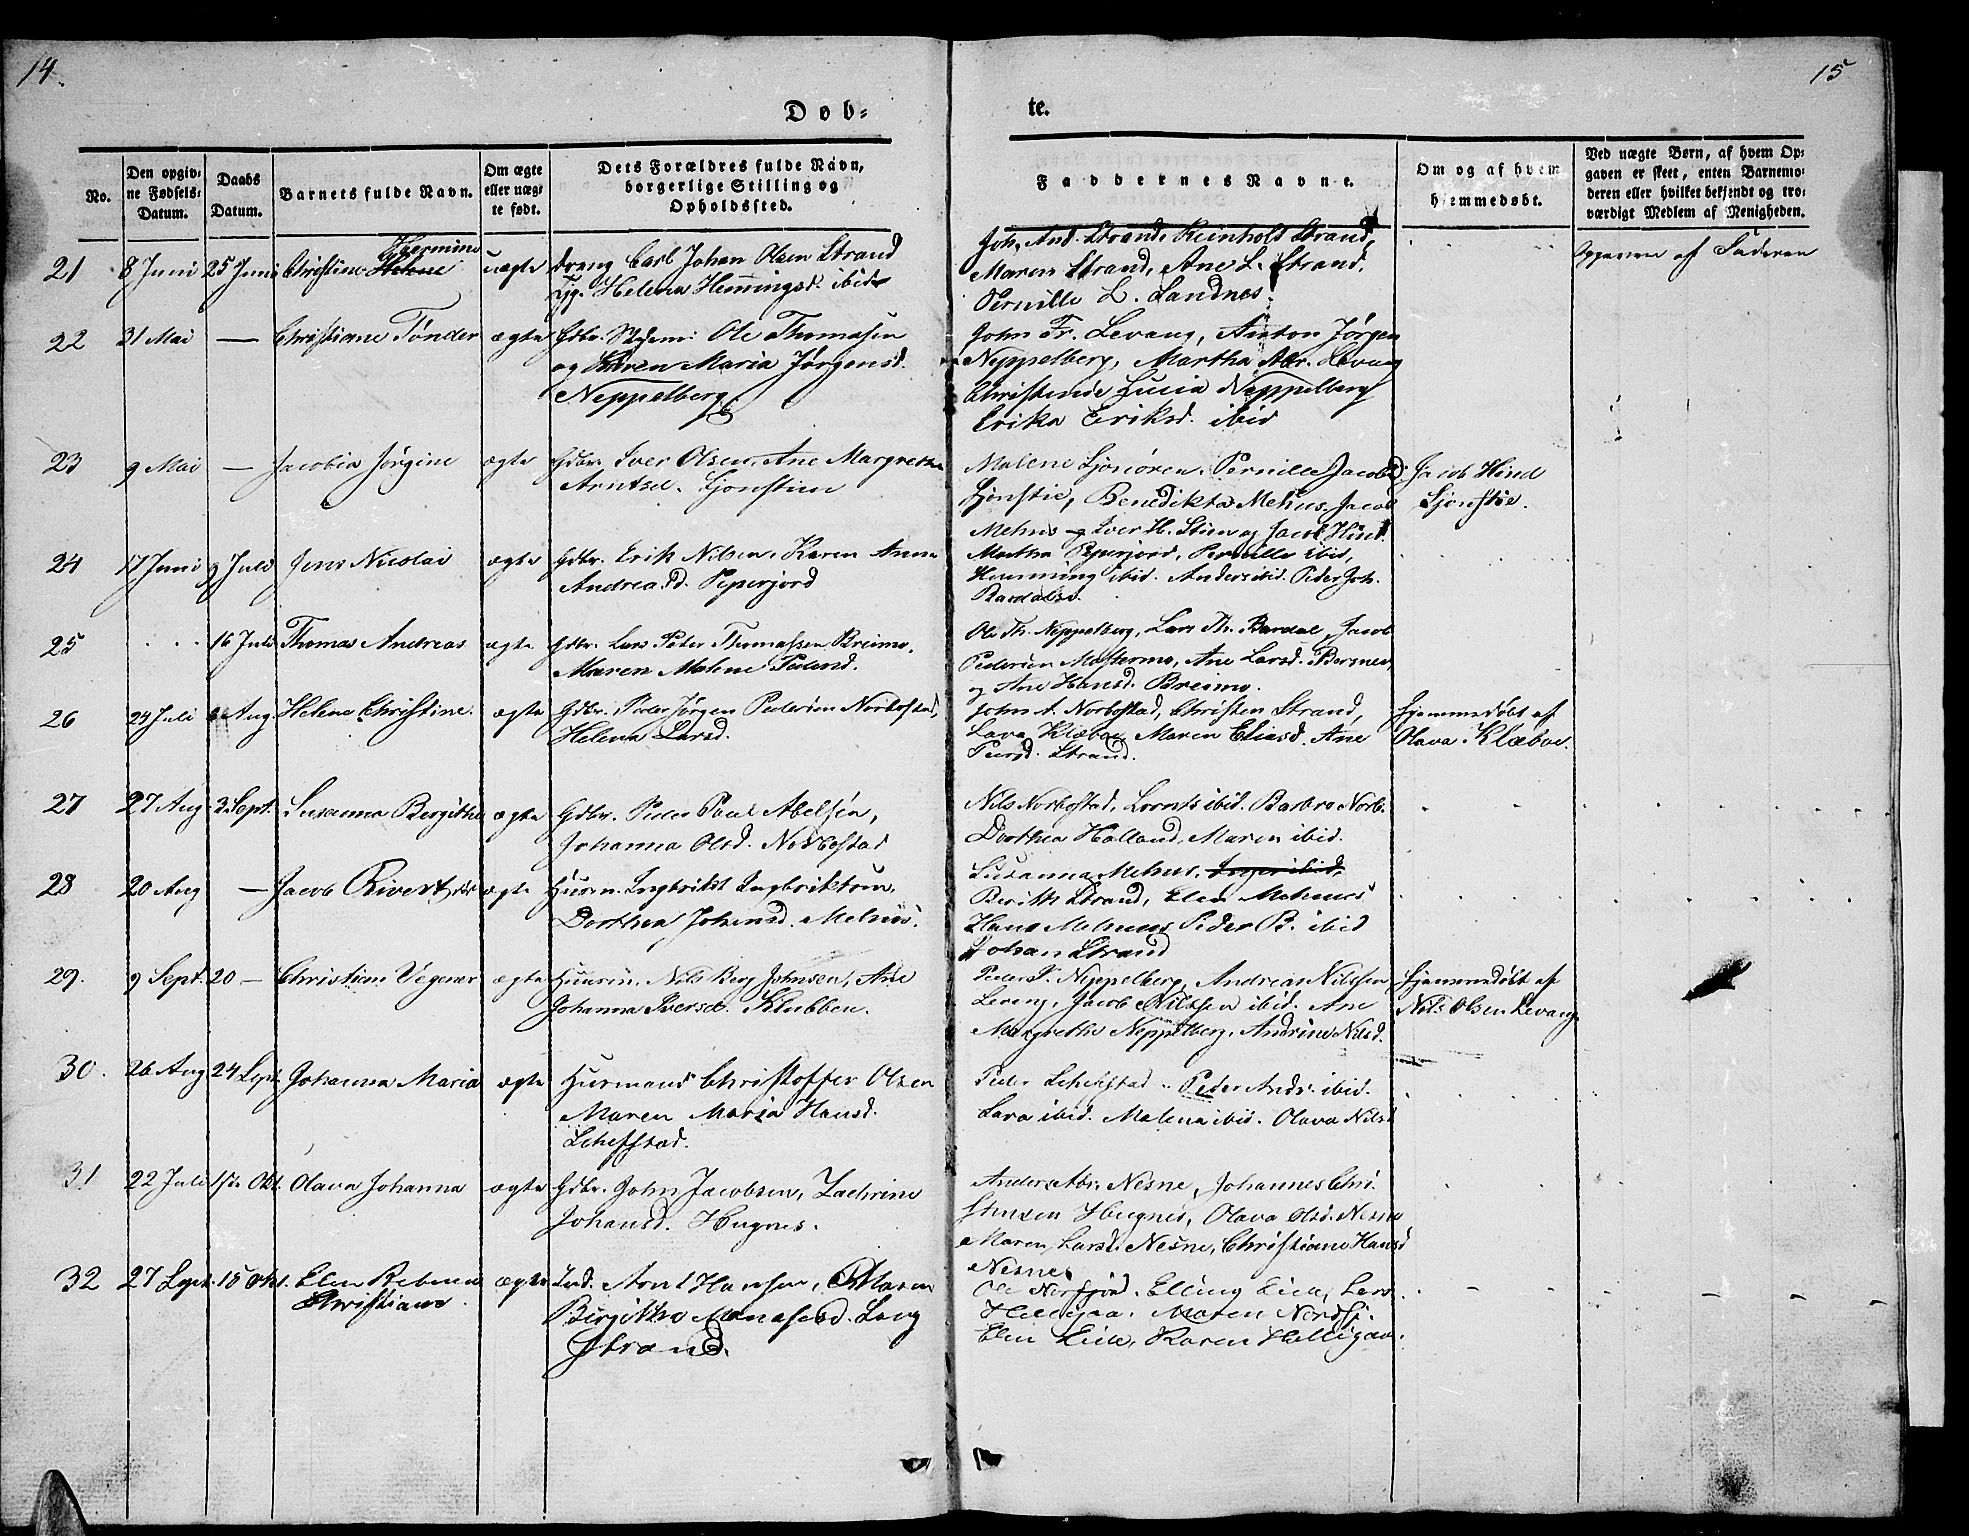 14.
15
Døb-
te.
No.
Den opgiv-
ne Fødsels-
Datum.
Daabs
Datum.
Barnets fulde Navn.
Om ægte
eller uæg-
te født.
Dets Forældres fulde Navn,
borgerlige Stilling og
Opholdssted.
Faddernes Navne.
Om og af hvem
hjemmedøbt.
Ved uægte Børn, af hvem Op-
gaven er skeet, enten Barnemo-
deren eller hvilket bekjendt og tro-
værdigt Medlem af Menigheden.
21 8 Juni 25 Juni Christine Helene Hermine uægte
dreng Carl Johan Olsen Strand
pg. Helena Hemingsd. ibid
Joh. And. Strand, Reinholt Strand,
Maren Strand, Ane L. Strand.
Pernille L. Sandnes.
Opgaven af Faderen
22 31 Mai — Christiane Tønder ægte
Gdbr. Ole Thomasen
og Karen Maria Jørgensd.
Neppelberg
John Fr. Levang, Anton Jørgen
Neppelberg, Martha Abr. Levang
Lucia Neppelberg
Erika Eriksd. ibid
23 9 Mai — Jacobia Jørgine ægte
Gdbr. Iver Olsen, Ane Margrethe
Arntsd. Sjonstien
Malene Sjonøren, Pernille Jacobsd.
Sjonstie, Benedikta Mehus, Jacob
Mehus og Iver H. Stien og Jacob Hind.
Jacob Hind
Sjonstie.
24 17 Juni 9 Juli Jens Nicolai ægte
Gdbr. Erik Nilsen, Karen Anna
Andreasd. Peperjord
Martha Peperjord, Pernille ibid,
Hemming ibid. Anders ibid. Peder Joh.
Bardalse.
25 16 Juli Thomas Andreas ægte
Gdbr. Lars Peter Thomassen Breimo,
Maren Malene Pedersd.
Ole Th. Neppelberg, Lars Th. Bardal, Jacob
Pedersen Mostermo, Ane Larsd.
og Ane Hansd. Breimo.
26 24 Juli 6 Aug. Helene Christine. ægte
Gdbr. Peder Jørgen Pedersen Norbostad,
Helena Larsd.
John A. Norbostad, Christen Strand,
Lava Klæboe, Maren Eliasd. Ane
Pedersd. Strand.
Hjemmedøbt af
Olava Klæboe.
27 27 Aug 3 Sept. Susanna Bergithe ægte
Gdbr. Peder Paul Abelsen,
Johanna Olsd. Norbostad
Nils Norbostad, Lornts ibid. Barbro Norb.
Dorthea Holland, Maren ibid.
28 20 Aug — Jacob ægte
Husm. Ingbrikt Ingbriktsen,
Dorthea Johansd. Mehus.
Susanna Mehus, Inger ibid,
Berith Strand, Elen Mehus
Hans Mehus Peder B. ibid
Johan Strand
29. 9 Sept. 20 — Christian Vegener ægte
Husm. Nils Berg Johnsen, Ane
Johanna Iversd. Klubben.
Peder T. Neppelberg, Andreas Nilssen
Leveng, Jacob Nilssen ibid. Ane
Margrethe Neppelberg, Andrine Nilsd.
Hjemmedøbt af
Nils Olsen Levang
30. 26 Aug 24 Sept. Johanna Maria ægte
Husmand Christoffer Olsen
Maren Maria Hansd.
Schefstad.
Peder Schefstad. Peder Ands. ibid.
Lara ibid. Malena ibid. Olava Nilsd
31 22 Juli 1ste Okt. Olava Johanna ægte
Gdbr. John Jacobsen, Zachrine
Johansd. Hugnes.
Anders Abr. Nesne, Johannes Chri-
stensen Hugnes, Olava Olsd. Nesne
Maren Larsd. Nesne, Christiane Hansd
Nesne
32 27 Sept. 15 Okt. Elen Rebecca
Christiane. ægte
Ind. Arnt Hansen, Maren
Birgitha Monasesd. Lang
strand.
Ole Nerfjord. Elling Lien, Lars
Helligaa. Maren Nordfj.
Elen Lien, Karen Helligaa.